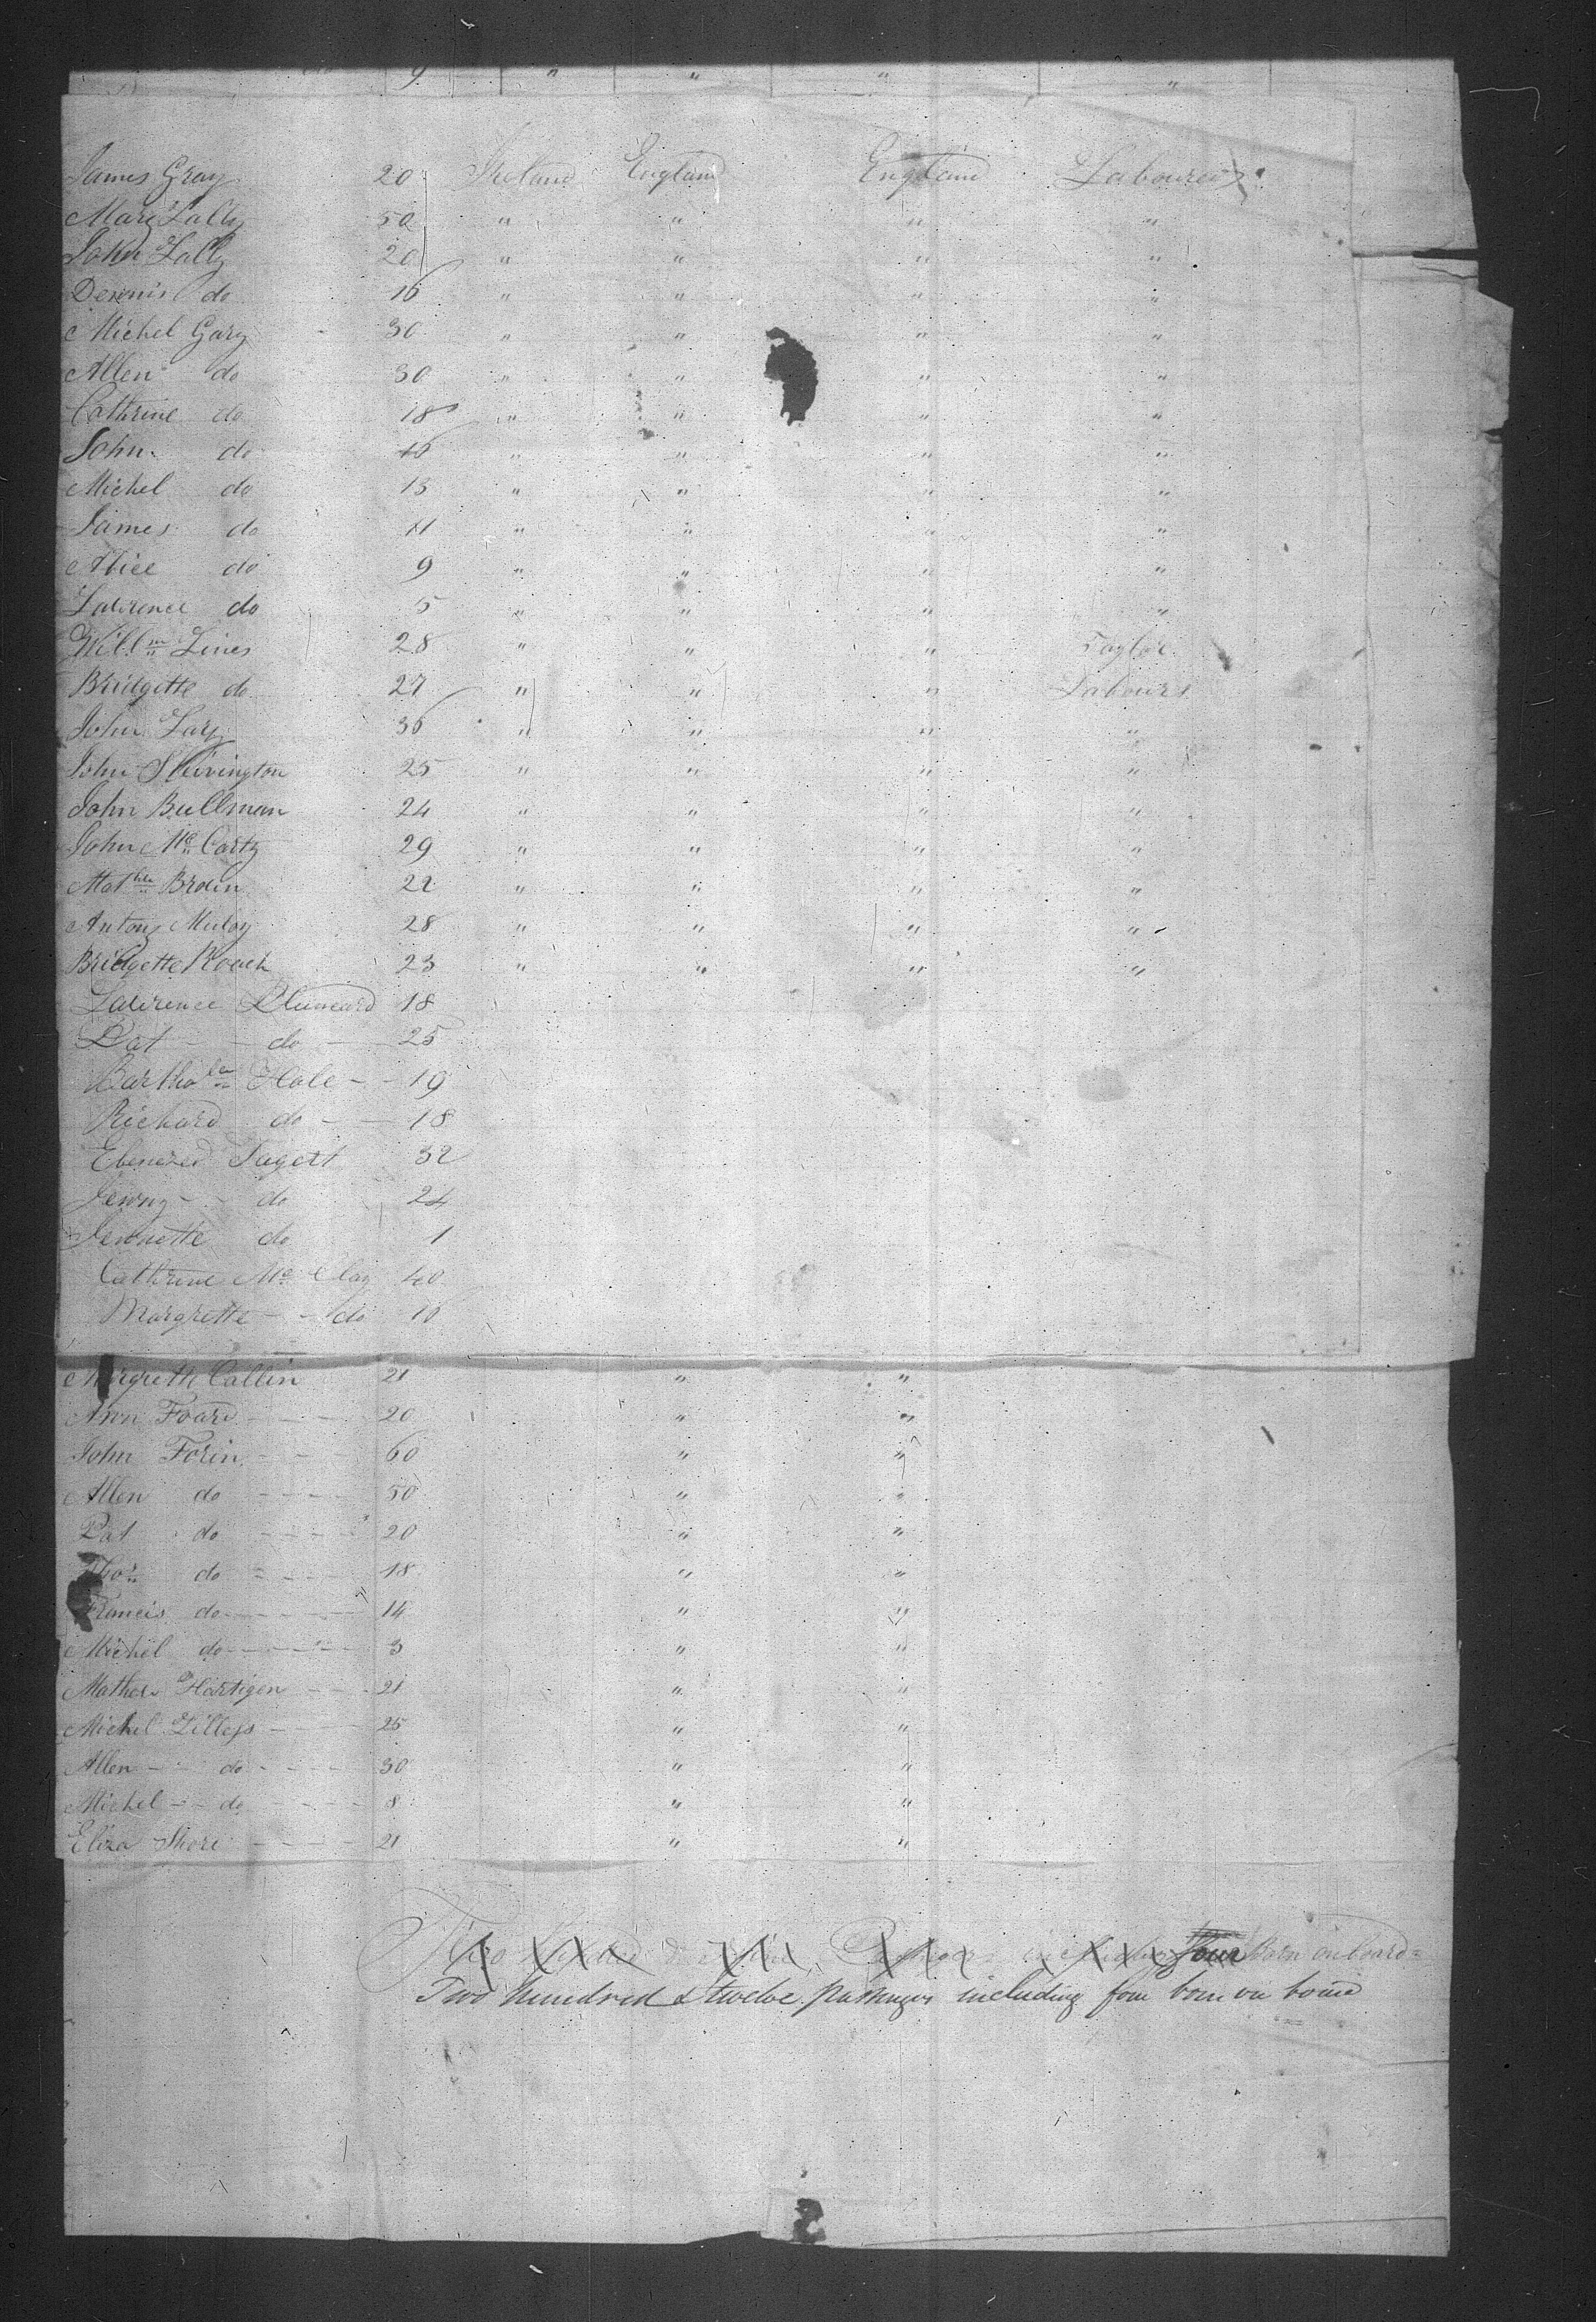 9 " " " "
James Gray 20 Ireland England England Labourers
Mary Lally 50 " " " "
John Lally 20 " " " "
Dennis do 16 " " " "
Michel Gary 30 " " " "
Allen do 30 " " " "
Cathrine do 18 " " " "
John do 16 " " " "
Michel do 13 " " " "
James do 11 " " " "
Alice do 9 " " " "
Lawrence do 5 " " " "
Willm Lines 28 " " " Taylor
Bridgette do 27 " " " Labours
John Lary 36 " " " "
John Skivington 25 " " " "
John Bullman 24 " " " "
John Mc Carty 29 " " " "
Mathw Broin 22 " " " "
Antony Muloy 28 " " " "
Bridgette Roach 23 " " " "
Lawrence 18
Pat do 25
Bartholw Hale 19
Richard do 18
Ebenezer 32
Jenny do 24
Jennette do 1
Cathrine Mc Clay 40
Margrette do 16
Margreth Callin 21 " "
Ann Foard 20 " "
John Forin 60 " "
Allen do 50 " "
Pat do 20 " "
Thos do 18 " "
Francis do 14 " "
Michel do 3 " "
Mathew Hartigen 21 " "
Michel 25 " "
Allen do 30 " "
Michel do 8 " "
Eliza Shore 21 " "
Two Hundred & Passengers including four Born on board
Two hundred & twelve passengers including four born on board